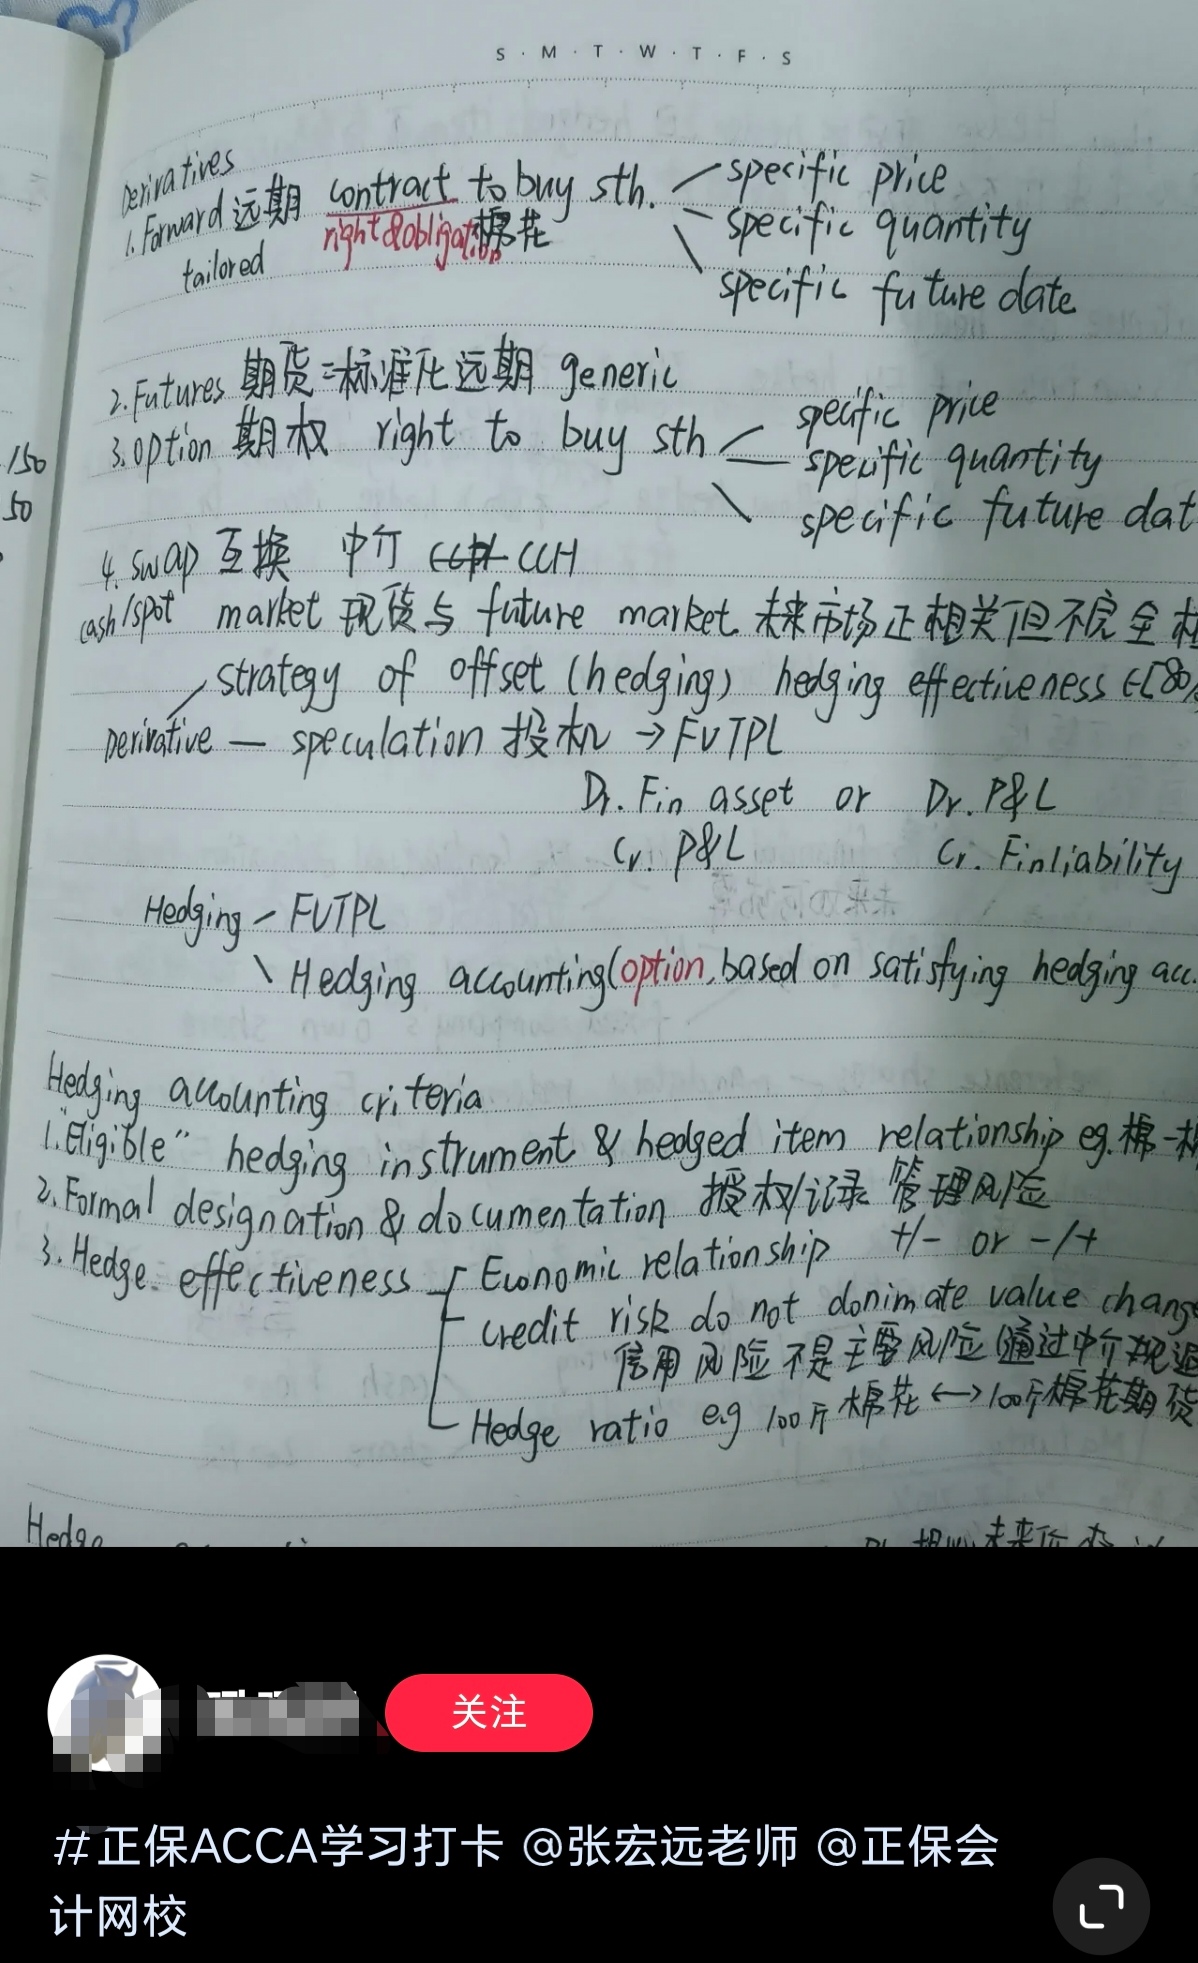 S · M · T · W · T · F · S
Derivatives
1. Forward 远期 contract to buy sth. specific price
right & obligation 棉花 specific quantity
tailored specific future date
2. Futures 期货=标准化远期 generic
3. option 期权 right to buy sth specific price
specific quantity
specific future dat
150
50
4. swap 互换 中介 CCH
cash/spot market 现货与 future market 未来市场正相关但不完全
strategy of offset (hedging) hedging effectiveness ∈[80%
Derivative — speculation 投机 → FVTPL
Dr. Fin asset or Dr. P&L
Cr. P&L Cr. Fin liability
Hedging — FVTPL
Hedging accounting (option, based on satisfying hedging acc.
Hedging accounting criteria
1. "Eligible" hedging instrument & hedged item relationship eg. 棉-棉
2. Formal designation & documentation 授权/记录 管理风险
3. Hedge effectiveness Economic relationship +/- or -/+
credit risk do not donimate value change
信用风险不是主要风险(通过中介规避
Hedge ratio e.g 100斤棉花 ⟷ 100斤棉花期货
Hedge
关注
#正保ACCA学习打卡 @张宏远老师 @正保会
计网校